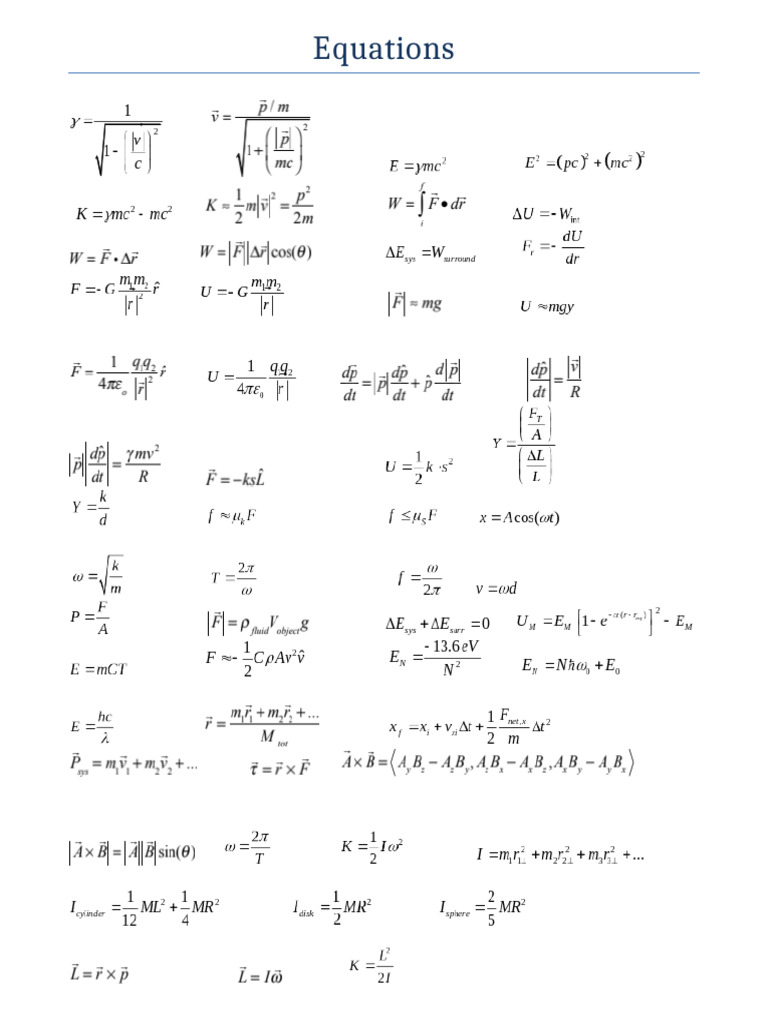 Equations
γ = 1 / √(1 - (|v⃗| / c)²)    v⃗ = (p⃗ / m) / √(1 + (|p⃗| / mc)²)    E = γmc²    E² = (pc)² + (mc²)²
K = γmc² - mc²    K ≈ 1/2 m|v⃗|² = p²/2m    W = ∫ᵢᶠ F⃗ • dr⃗    ΔU = -W_int
W = F⃗ • Δr⃗    W = |F⃗||Δr⃗| cos(θ)    ΔE_sys = W_surround    F_r = - dU/dr
F = -G m₁m₂/|r⃗|² r̂    U = -G m₁m₂/|r|    |F⃗| ≈ mg    U ≈ mgy
F⃗ = 1/4πε_o q₁q₂/|r⃗|² r̂    U = 1/4πε₀ q₁q₂/|r|    dp⃗/dt = |p⃗| dp̂/dt + p̂ d|p⃗|/dt    |dp̂/dt| = |v⃗|/R
|p⃗| |dp̂/dt| = γmv²/R    F⃗ = -ksL̂    U = 1/2 k · s²    Y = (F_T/A) / (ΔL/L)
Y = k/d    f ≈ μ_k F    f ≤ μ_S F    x = A cos(ωt)
ω = √(k/m)    T = 2π/ω    f = ω/2π    v = ωd
P = F/A    |F⃗| = ρ_fluid V_object g    ΔE_sys + ΔE_surr = 0    U_M = E_M [1 - e^(-α(r - r_eq))]² - E_M
E = mCT    F ≈ - 1/2 CρAv² v̂    E_N = -13.6 eV/N²    E_N = Nħω₀ + E₀
E = hc/λ    r⃗ = (m₁r⃗₁ + m₂r⃗₂ + ...)/M_tot    x_f = x_i + v_xi Δt + 1/2 F_net,x/m Δt²
P⃗_sys = m₁v⃗₁ + m₂v⃗₂ + ...    τ⃗ = r⃗ × F⃗    A⃗ × B⃗ = ⟨A_yB_z - A_zB_y, A_zB_x - A_xB_z, A_xB_y - A_yB_x⟩
|A⃗ × B⃗| = |A⃗||B⃗| sin(θ)    ω = 2π/T    K = 1/2 Iω²    I = m₁r²₁⊥ + m₂r²₂⊥ + m₃r²₃⊥ + ...
I_cylinder = 1/12 ML² + 1/4 MR²    I_disk = 1/2 MR²    I_sphere = 2/5 MR²
L⃗ = r⃗ × p⃗    L⃗ = Iω⃗    K = L²/2I